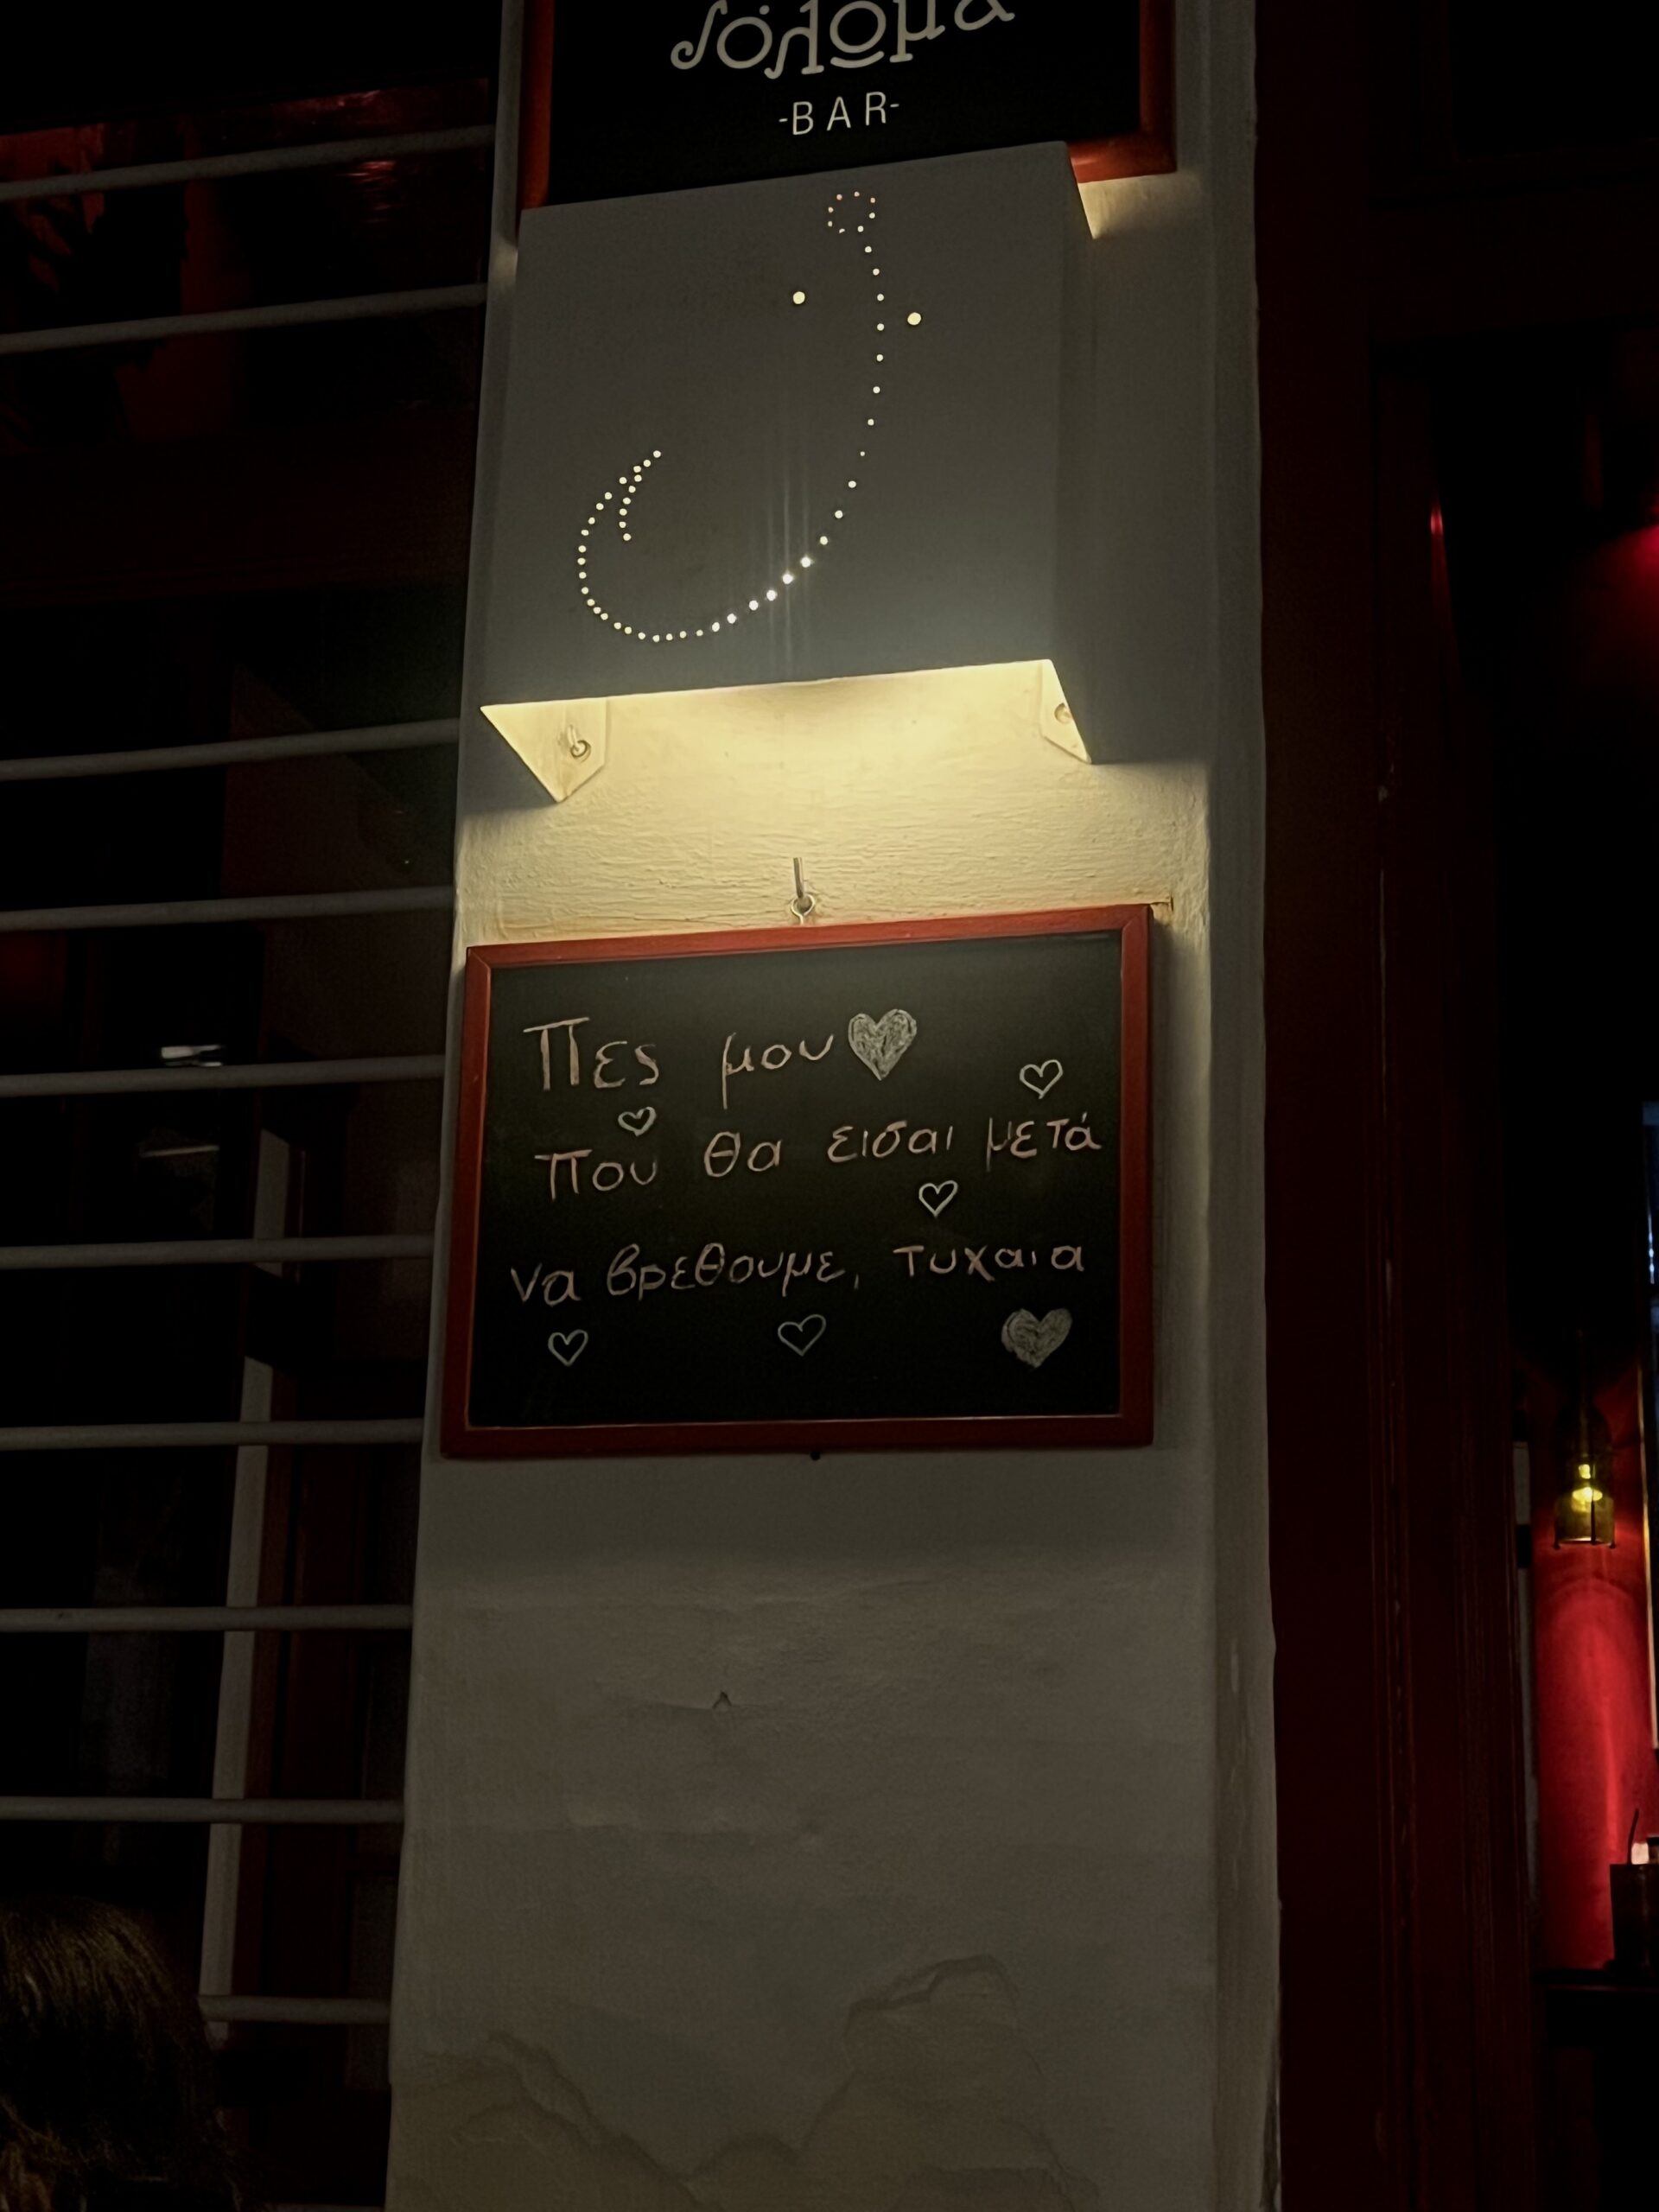 δόλωμα
-BAR-
Πες μου
που θα εισαι μετά
να βρεθουμε, τυχαια